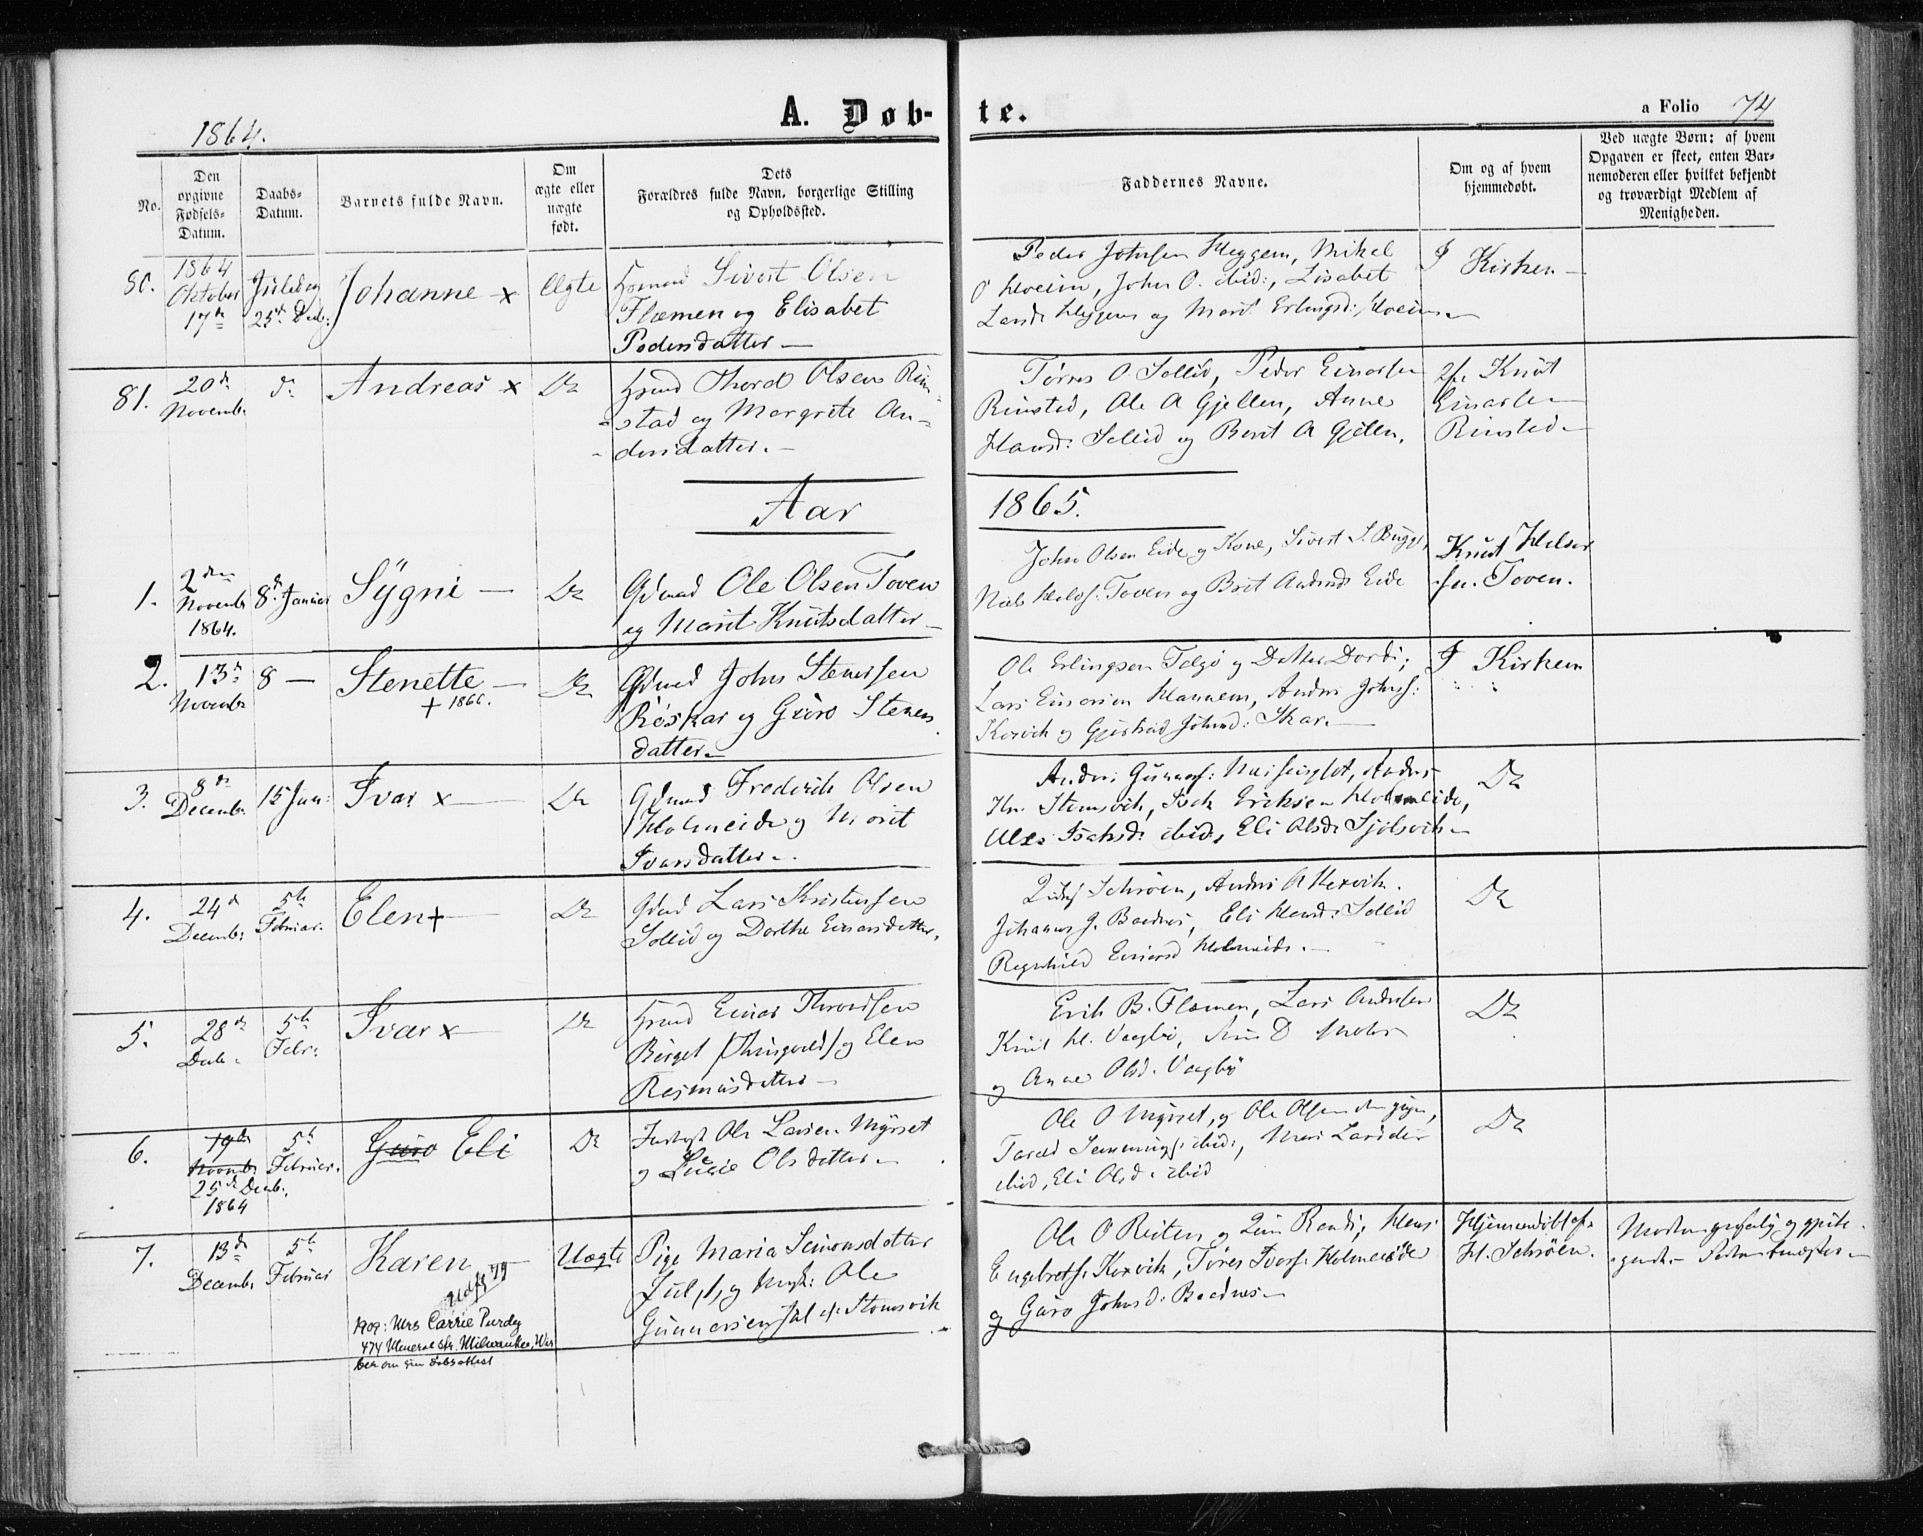 1864.
A. Døb-
te.
a Folio 74
No.
Den
opgivne
Fødsels-
Datum.
Daabs-
Datum.
Barnets fulde Navn.
Om
ægte eller
uægte
født.
Dets
Forældres fulde Navn, borgerlige Stilling
og Opholdssted.
Faddernes Navne.
Om og af hvem
hjemmedøbt.
Ved uægte Børn: af hvem
Opgaven er skeet, enten Bar-
nemoderen eller hvilket bekjendt
og troværdigt Medlem af
Menigheden.
80.
1864
Oktober
17de
Juledag
25de Decb:
Johanne x
Ægte
Sivert Olsen
Flemen og Elisabet
Pedersdatter —
Peder Johnsen Heggem, Mikel
O Hoeim, John O. ibid:, Lisabet
Larsd: Heggem og Marit Erlingsd: Hoeim —
I Kirken —
81.
20de
Novemb:
do
Andreas x
Do
Thord Olsen Rin-
-stad og Margrete An-
-dersdatter. —
Tørres O. Sollid, Peder Einarsen
Rinsted, Ole A Gjellen, Anne
Hansd: Sollid og Berit A Gjellen,
af Knut
Einarsen
Rinsted —
Aar
1865.
1.
2den
Novemb:
1864.
8de Januar
Sÿgni —
Do
Gdmd Ole Olsen Toven
og Marit Knutsdatter —
John Olsen Eide og Kone, Sivert S. Bugge,
Niels Toven og Brit Andersd: Eide
Knut
Toven.
2.
13de
Novemb:
8 —
Stenette —
+ 1866.
Do
Gdmd John Stenersen
Røskar og Guro Steners
datter —
Ole Erlingsen Talgø og Datter Dordi;
Lars Einarsen Hannem, Anders Johnss:
Korsvik og Johnsd: Skar. —
I Kirken
3.
8de
Decemb:
15 Jan:
Ivar x —
Do
Gdmd Frederik Olsen
Holmeide og Marit
Ivarsdatter —
Anders Gunners: Anders
Kn. Stemsvik, Isak Eriksen Holmeide,
Isaksd: ibid, Eli Olsd: Sjølsvik —
Do
4.
24de
Decemb:
5te
Februar.
Elen + —
Do
Gdmd Lars Kristensen
Sollid og Dorthe Einarsdatter.
Schrøen, Anders A Hexvik.
Johannes J. Baadnes, Eli Hansd: Sollid
Regnhild Einarsd Holmeide. —
Do
5.
28de
Decb.
5te
Febr.
Ivar x —
Do
Einar Throndsen
Berget /Thingvold/ og Elen
Rasmusdatter —
Erik B. Flemen, Lars Andersen
Knut H. Vaagbø,
og Anne Olsd. Vaagbø
Do
6.
19de
Novemb:
25de Decb:
1864
5te
Februar.
Guro Eli
Do
Ole Larsen Myrset
og Lucie Olsdatter —
Ole O Myrset, og Ole Olsen den yngre,
ibid:, Mari Larsdtr
ibid, Eli Olsd: ibid
Do
7.
13de
Decemb:
5te
Februar
Karen —
Uægte
Pige Maria Simonsdatter
Jul, og Ungk: Ole
Gunnersen af Stomsvik
Ole O Reiten og Randi; Hans
Engebrets: Korsvik, Tøres Ivars: Holmeide
og Guro Johnsd: Baadnes —
Hjemmedøbt af
H. Schrøen.
Moderen
1909: Mrs Carrie Purdy
474 Mineral str. Milwaukee, Wis
ber om sin Dåbsattest